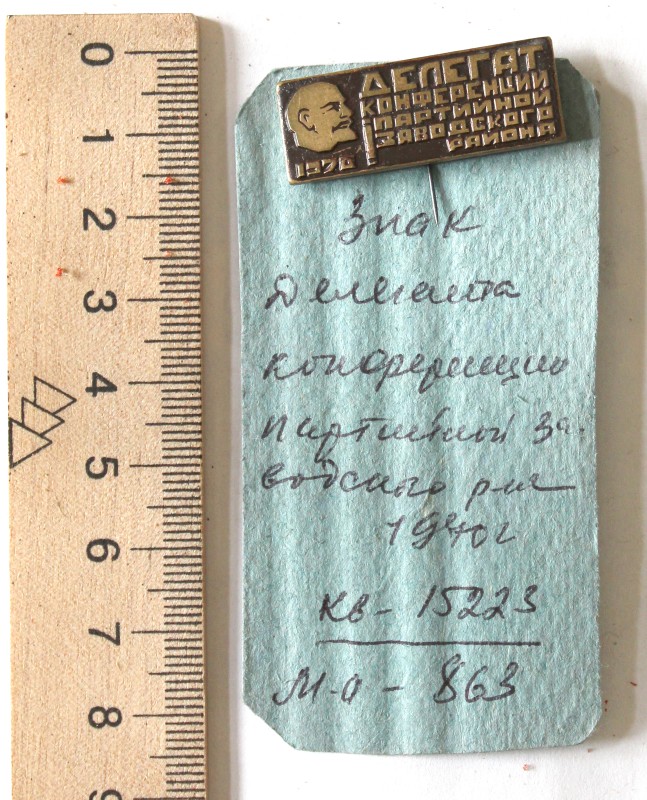 0
1
2
3
4
5
6
7
8
9
ДЕЛЕГАТ
КОНФЕРЕНЦИИ
ПАРТИЙНОЙ
ЗАВОДСКОГО
РАЙОНА
1970
Знак
Делегата
конференцию
партийной за-
водского р-на
1970г
КВ- 15223
М-а - 863